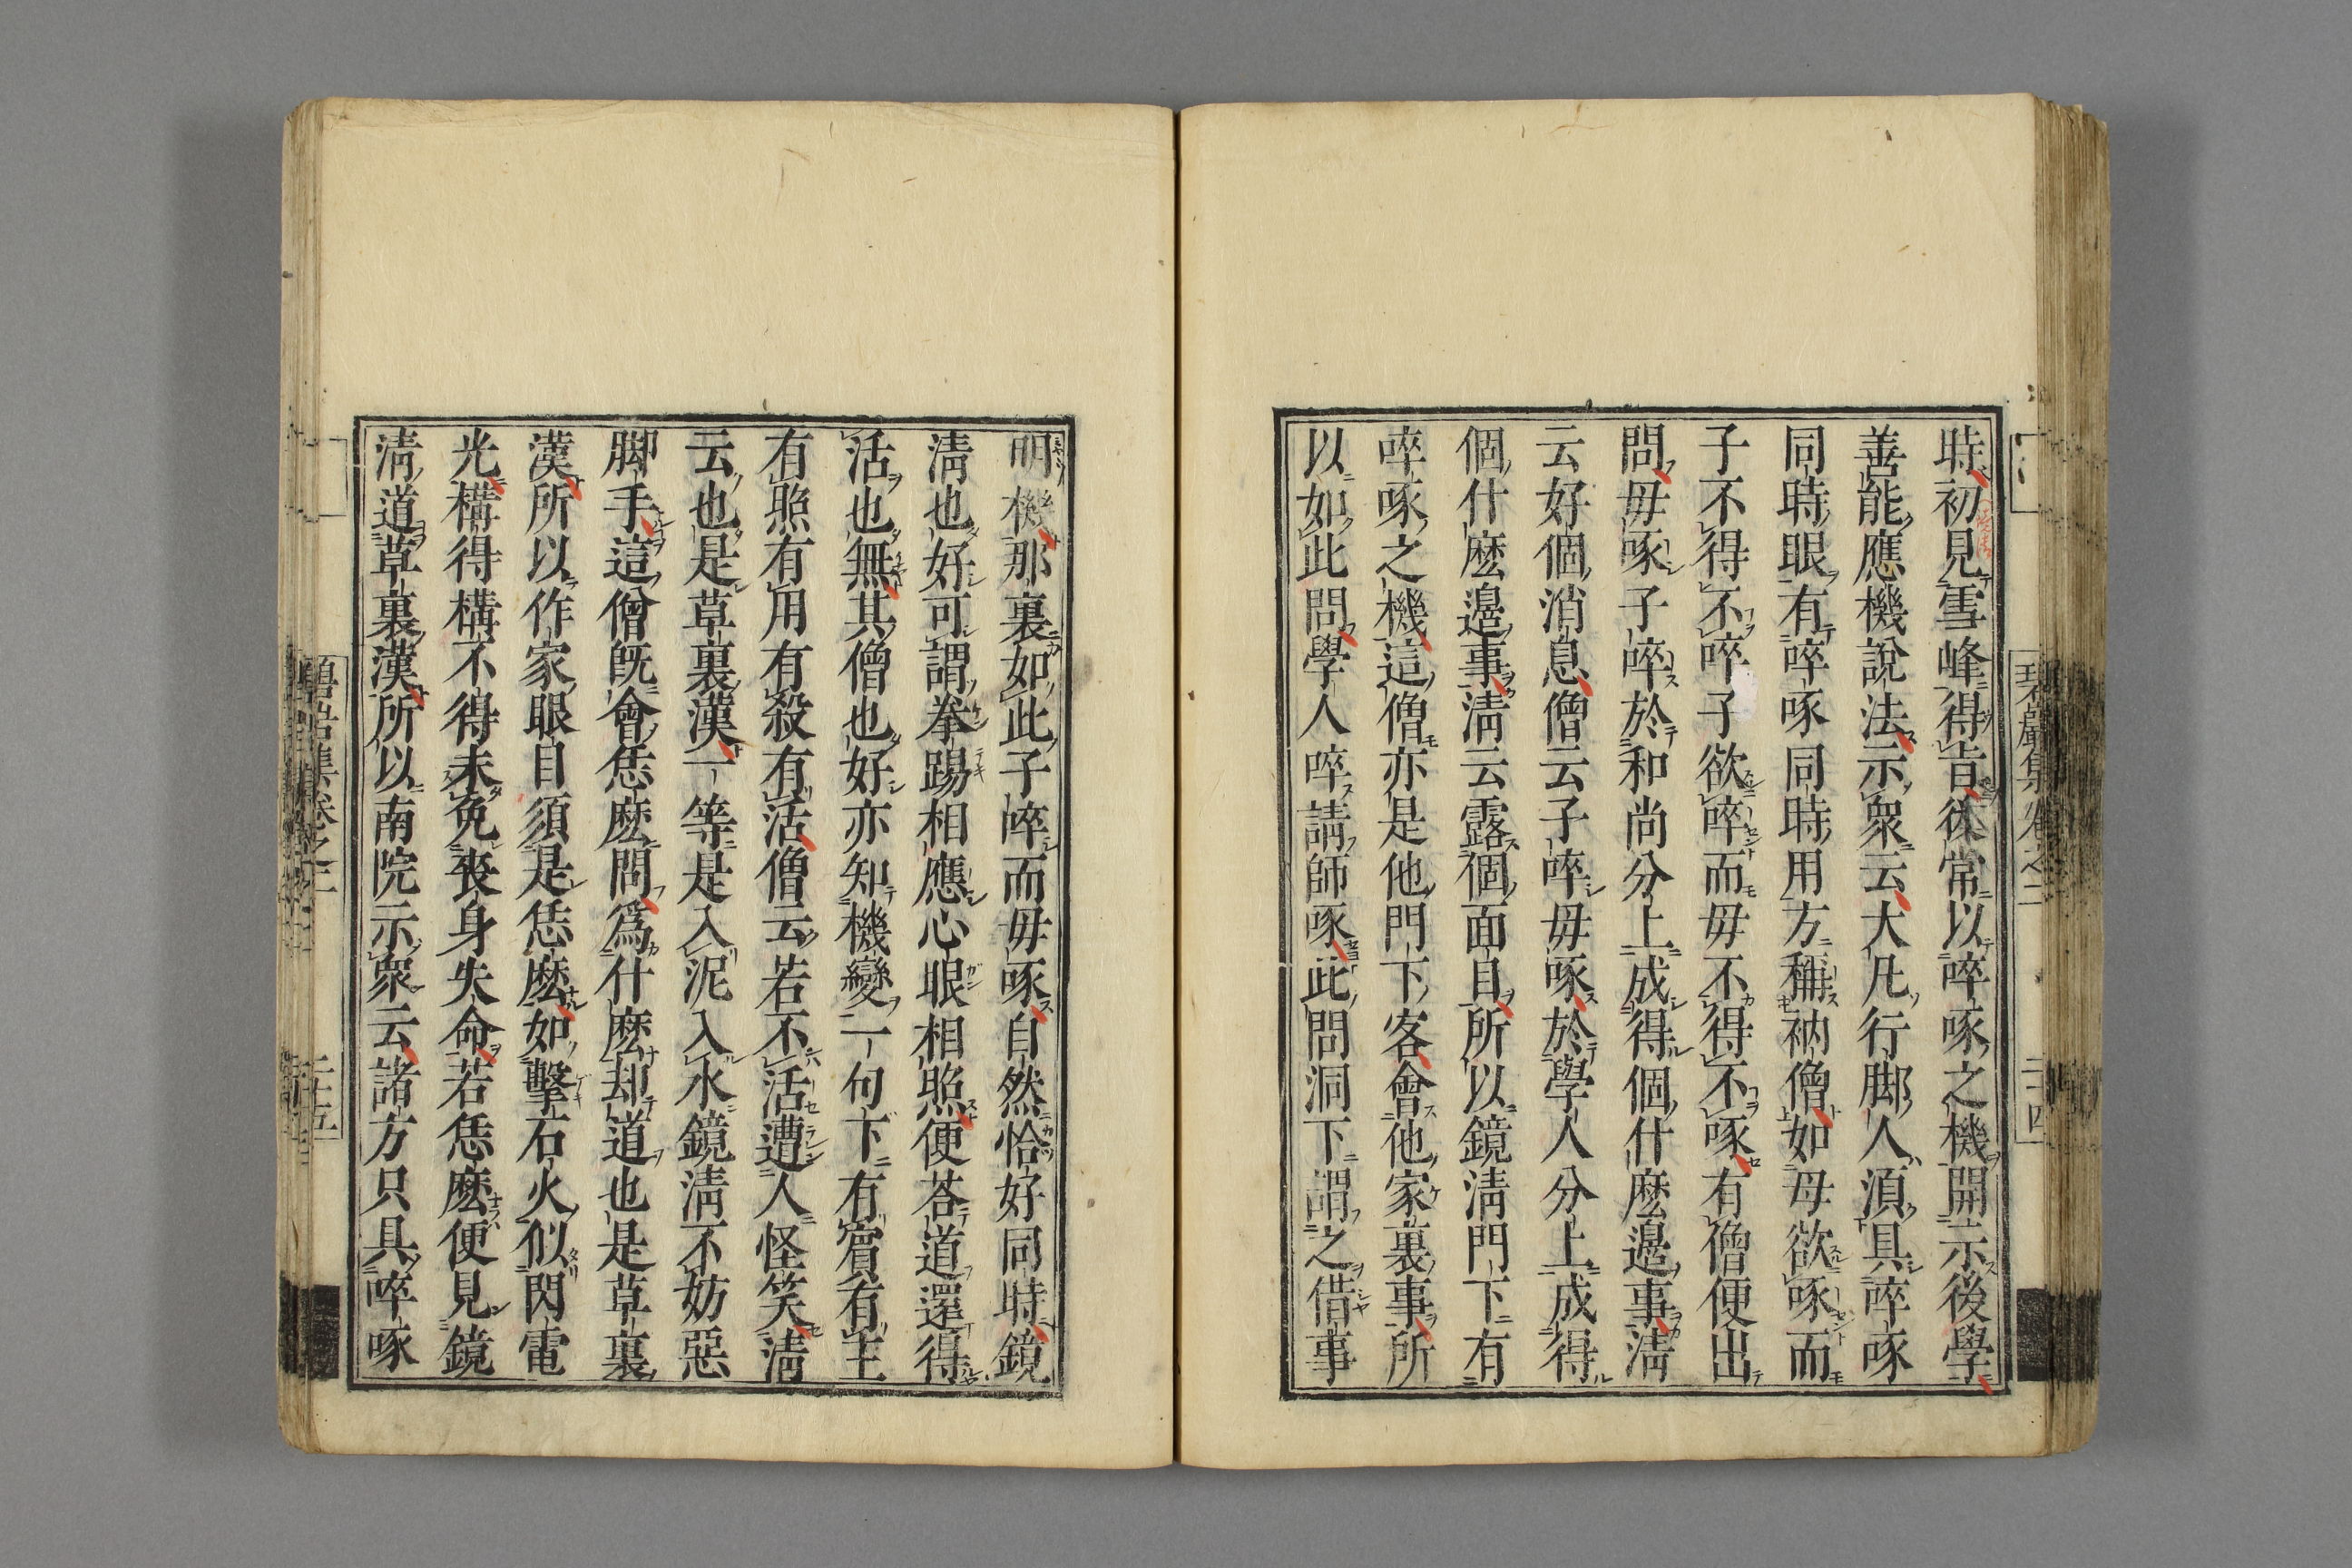 時初見雪峰得旨後常以啐啄之機開示後學
善能應機說法示衆云大凡行脚人須具啐啄
同時眼有啐啄同時用方稱衲僧如母欲啄而
子不得不啐子欲啐而母不得不啄有僧便出
問母啄子啐於和尚分上成得個什麼邊事淸
云好個消息僧云子啐母啄於學人分上成得
個什麼邊事淸云露個面目所以鏡淸門下有
啐啄之機這僧亦是他門下客會他家裏事所
以如此問學人啐請師啄此問洞下謂之借事
明機那裏如此子啐而母啄自然恰好同時鏡
淸也好可謂拳踢相應心眼相照便荅道還得
活也無其僧也好亦知機變一句下有賓有主
有照有用有殺有活僧云若不活遭人怪笑淸
云也是草裏漢一等是入泥入水鏡淸不妨惡
脚手這僧旣會恁麼問爲什麼却道也是草裏
漢所以作家眼目須是恁麼如擊石火似閃電
光構得構不得未免喪身失命若恁麼便見鏡
淸道草裏漢所以南院示衆云諸方只具啐啄